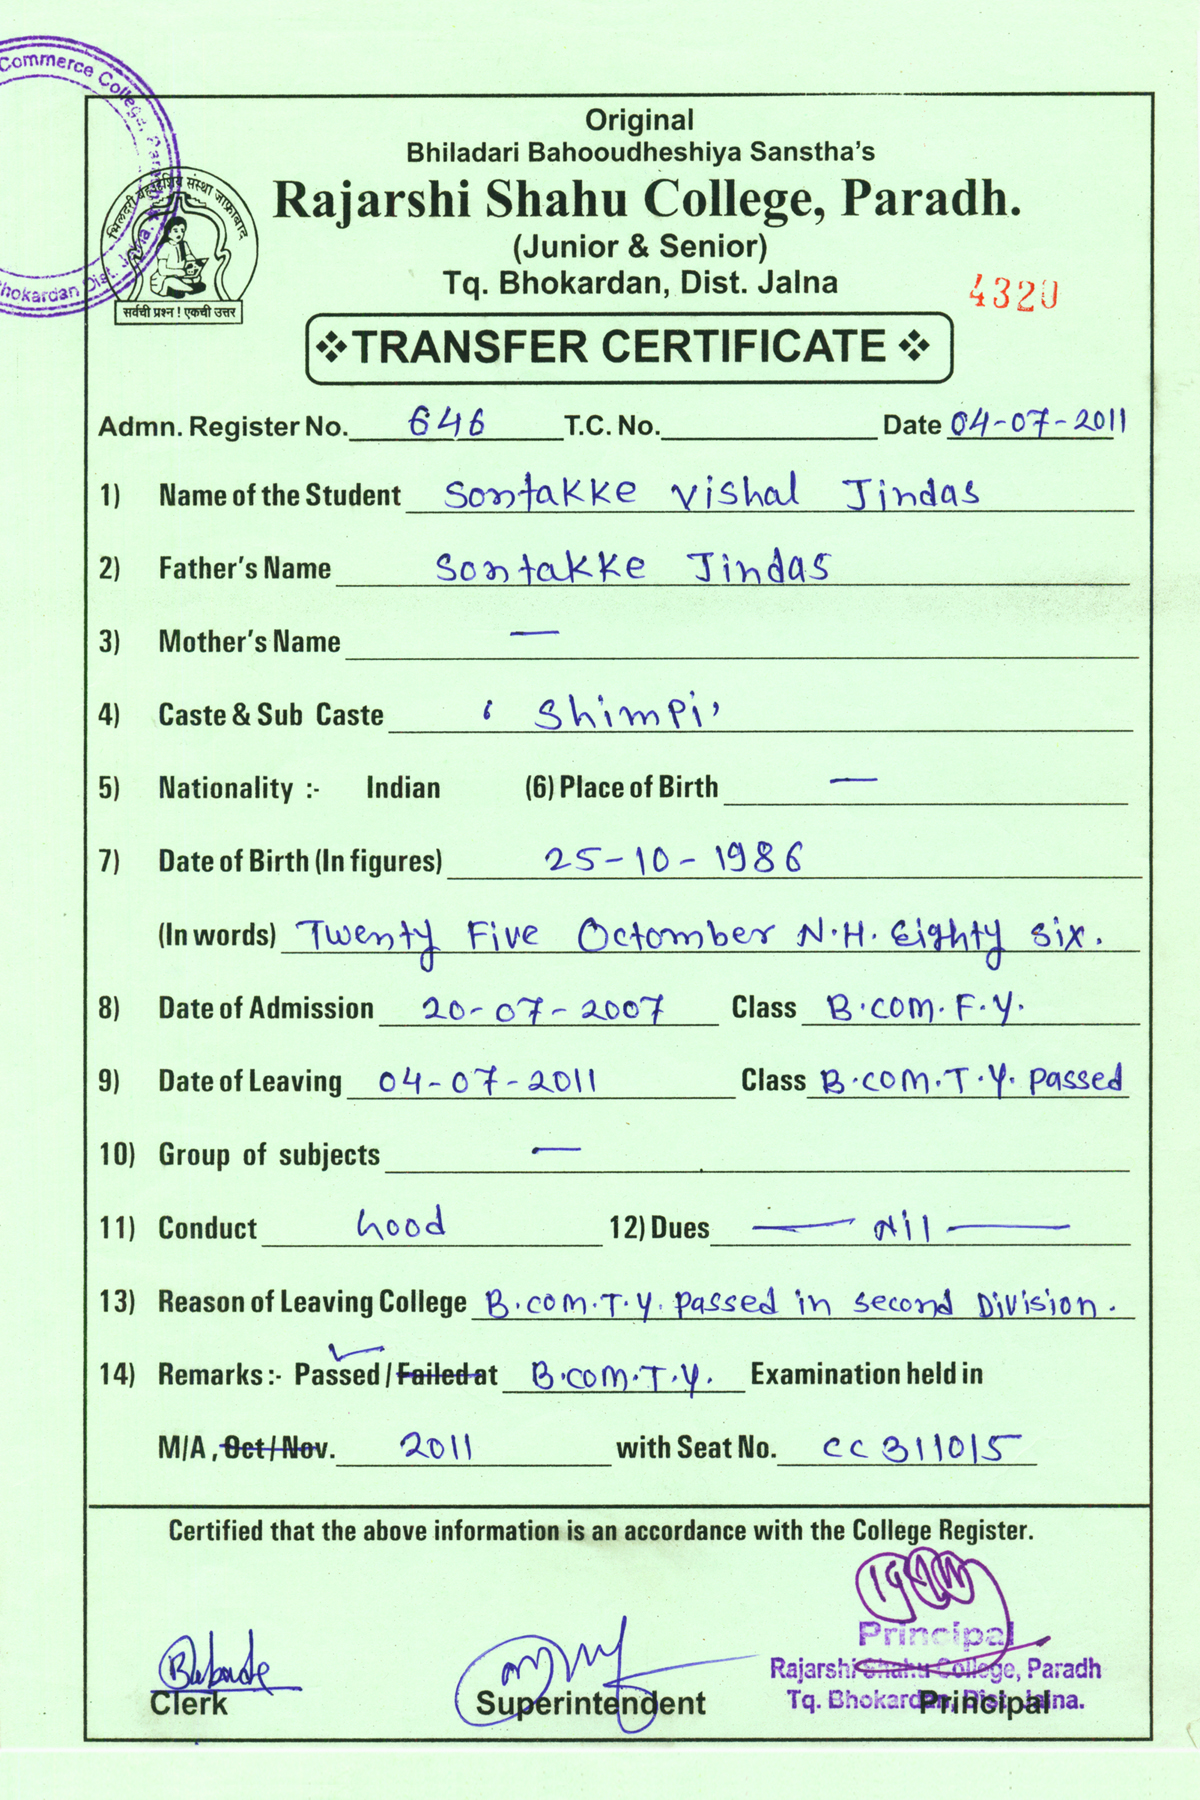 Commerce College, Paradh
Bhokardan Dist. Jalna.
Original
Bhiladari Bahooudheshiya Sanstha's
Rajarshi Shahu College, Paradh.
(Junior & Senior)
Tq. Bhokardan, Dist. Jalna
4320
भिलदरी बहुउद्देशिय संस्था जाफ्राबाद
सर्वची प्रश्न ! एकची उत्तर
❖ TRANSFER CERTIFICATE ❖
Admn. Register No. 646 T.C. No. Date 04-07-2011
1) Name of the Student Sontakke Vishal Jindas
2) Father's Name Sontakke Jindas
3) Mother's Name —
4) Caste & Sub Caste ‘ Shimpi’
5) Nationality :- Indian (6) Place of Birth —
7) Date of Birth (In figures) 25-10-1986
(In words) Twenty Five Octomber N.H. Eighty Six.
8) Date of Admission 20-07-2007 Class B.com.F.Y.
9) Date of Leaving 04-07-2011 Class B.com.T.Y. Passed
10) Group of subjects —
11) Conduct Good 12) Dues — Nil —
13) Reason of Leaving College B.com.T.Y. Passed in Second Division.
14) Remarks :- Passed / Failed at B.com.T.Y. Examination held in
M/A , Oct / Nov. 2011 with Seat No. CC311015
Certified that the above information is an accordance with the College Register.
Principal
Rajarshi Shahu College, Paradh
Tq. Bhokardan, Dist. Jalna.
Clerk Superintendent Principal